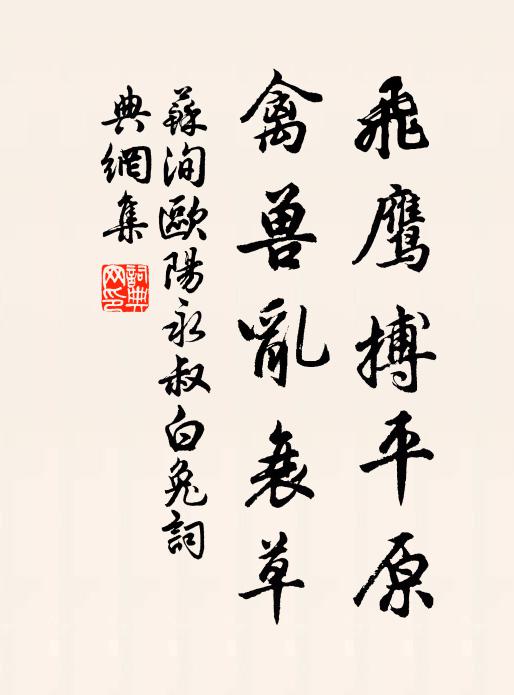 飛鷹搏平原
禽兽亂衰草
蘇洵歐陽永叔白兔詞
典網集
詞典
网印